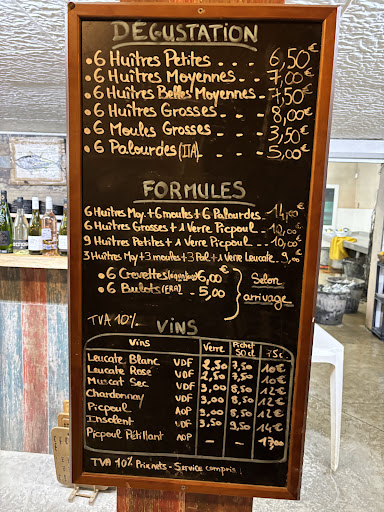 DÉGUSTATION
.6 Huîtres Petites - - - 6,50€
.6 Huîtres Moyennes - - - 7,00€
.6 Huîtres Belles Moyennes - 7,50€
.6 Huîtres Grosses - - - 8,00€
.6 Moules Grosses - - - 3,50€
.6 Palourdes (IIA) - - 5,00€
FORMULES
6 Huîtres Moy. + 6 moules + 6 Palourdes - 14,00€
6 Huîtres Grosses + 1 Verre Picpoul - - 10,00€
9 Huîtres Petites + 1 Verre Picpoul - - 10,00€
3 Huîtres Moy + 3 moules + 3 Pal + 1 Verre Leucate - 9,00
.6 Crevettes 6,00€
.6 Bulots (FRA) - - 5,00
Selon arrivage
TVA 10%
VINS
Vins Verre Pichet 50cl 75c
Leucate Blanc VDF 2,50 7,50 10€
Leucate Rosé VDF 2,50 7,50 10€
Muscat Sec VDF 3,00 8,50 12€
Chardonnay VDF 3,00 8,50 12€
Picpoul AOP 3,00 8,50 12€
Insolent VDF 3,00 9,50 14€
Picpoul Pétillant AOP - - 17,00
TVA 10% Prix nets - Service compris